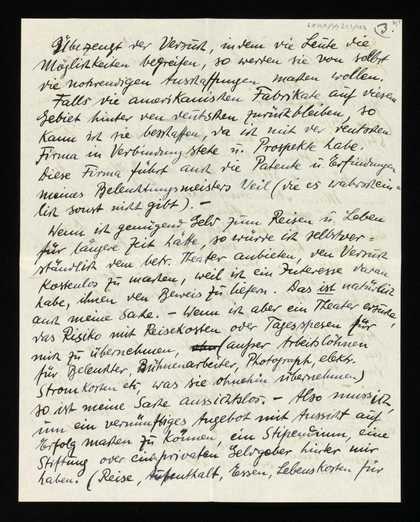 3.
Überzeugt der Versuch, indem die Leute die
Möglichkeiten begreifen, so werden sie von selbst
die notwendigen Anschaffungen machen wollen.
Falls die amerikanischen Fabrikate auf diesem
Gebiet hinter den deutschen zurückbleiben, so
kann ich sie beschaffen, da ich mit der deutschen
Firma in Verbindung stehe u. Prospekte habe.
Diese Firma führt auch die Patente u. Erfindungen
meines Beleuchtungsmeisters Veil (die es wahrschein-
lich sonst nicht gibt). –
Wenn ich genügend Geld zum Reisen u. Leben
für längere Zeit hätte, so würde ich selbstver-
ständlich dem betr. Theater anbieten, den Versuch
kostenlos zu machen, weil ich ein Interesse daran
habe, ihnen den Beweis zu liefern. Das ist natürlich
auch meine Sache. – Wenn ich aber ein Theater ersuche,
das Risiko mit Reisekosten oder Tagesspesen für
mich zu übernehmen, außer Arbeitslöhnen
für Beleuchter, Bühnenarbeiter, Photograph, elektr.
Stromkosten etc, was sie ohnehin übernehmen)
so ist meine Sache aussichtslos. – Also muss ich,
um ein vernünftiges Angebot mit Aussicht auf
Erfolg machen zu können, ein Stipendium, eine
Stiftung oder einen privaten Geldgeber hinter mir
haben. (Reise, Aufenthalt, Essen, Lebenskosten für